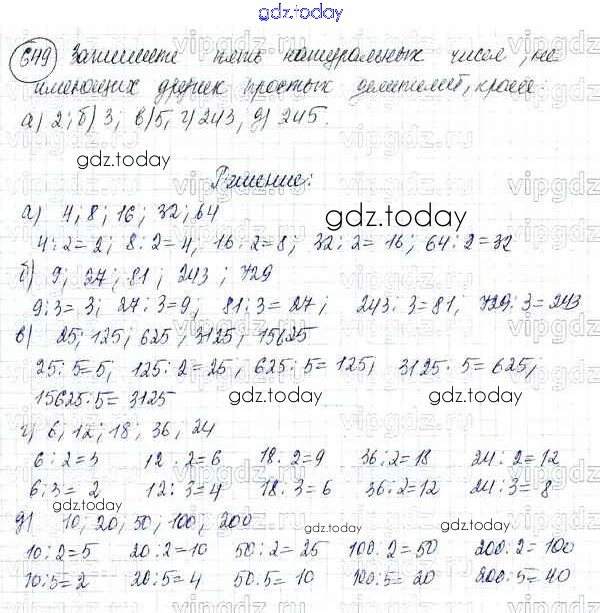 gdz.today
649 Запишите пять натуральных чисел, не
имеющих других простых делителей, кроме:
а) 2; б) 3; в) 5, г) 243; д) 245.
gdz.today
Решение:
а) 4; 8; 16; 32; 64
gdz.today
4:2=2; 8:2=4, 16:2=8; 32:2=16; 64:2=32
б) 9; 27; 81; 243; 729
9:3=3; 27:3=9; 81:3=27; 243:3=81, 729:3=243
в) 25; 125; 625; 3125; 15625
25:5=5; 125:2=25, 625:5=125; 3125:5=625;
15625:5=3125
gdz.today
gdz.today
г) 6; 12; 18; 36; 24
6:2=3 12:2=6 18:2=9 36:2=18 24:2=12
6:3=2 12:3=4 18:3=6 36:2=12 24:3=8
gdz.today
д) 10; 20; 50; 100; 200
gdz.today
10:2=5 20:2=10 50:2=25 100:2=50 200:2=100
10:5=2 20:5=4 50:5=10 100:5=20 200:5=40
gdz.today